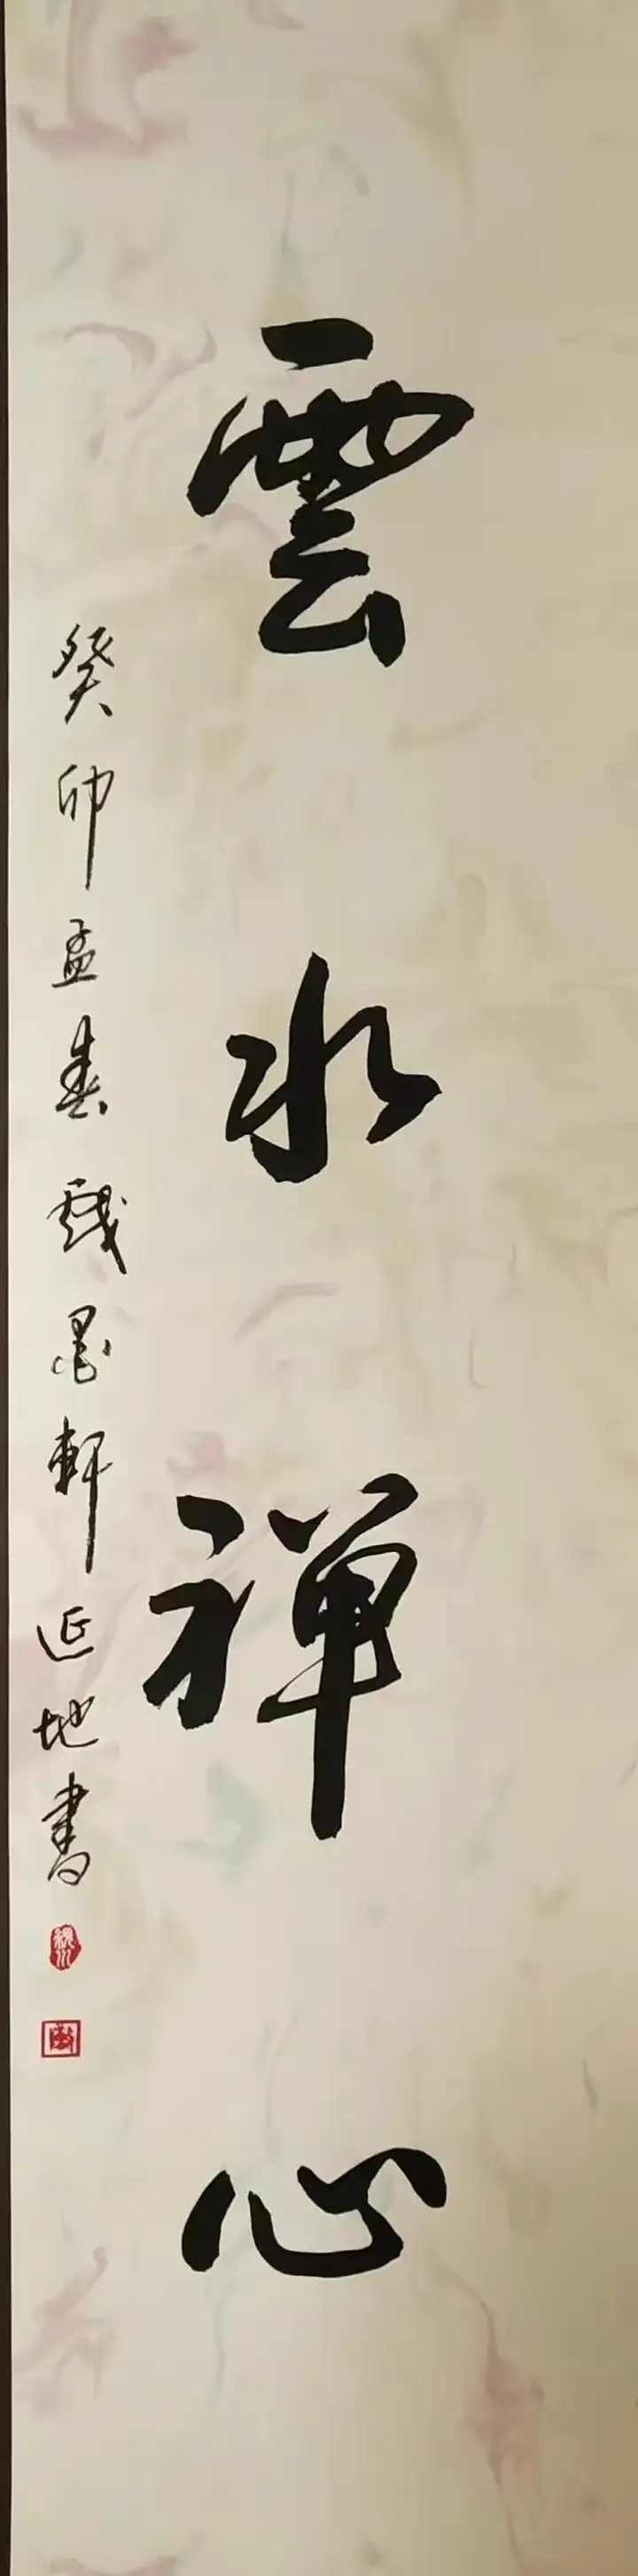 雲水禅心
癸卯孟春戲墨軒延地書